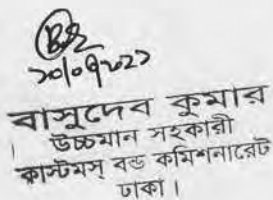 ২০/০৭/২০২১
বাসুদেব কুমার
উচ্চমান সহকারী
কাস্টমস্ বন্ড কমিশনারেট
ঢাকা।